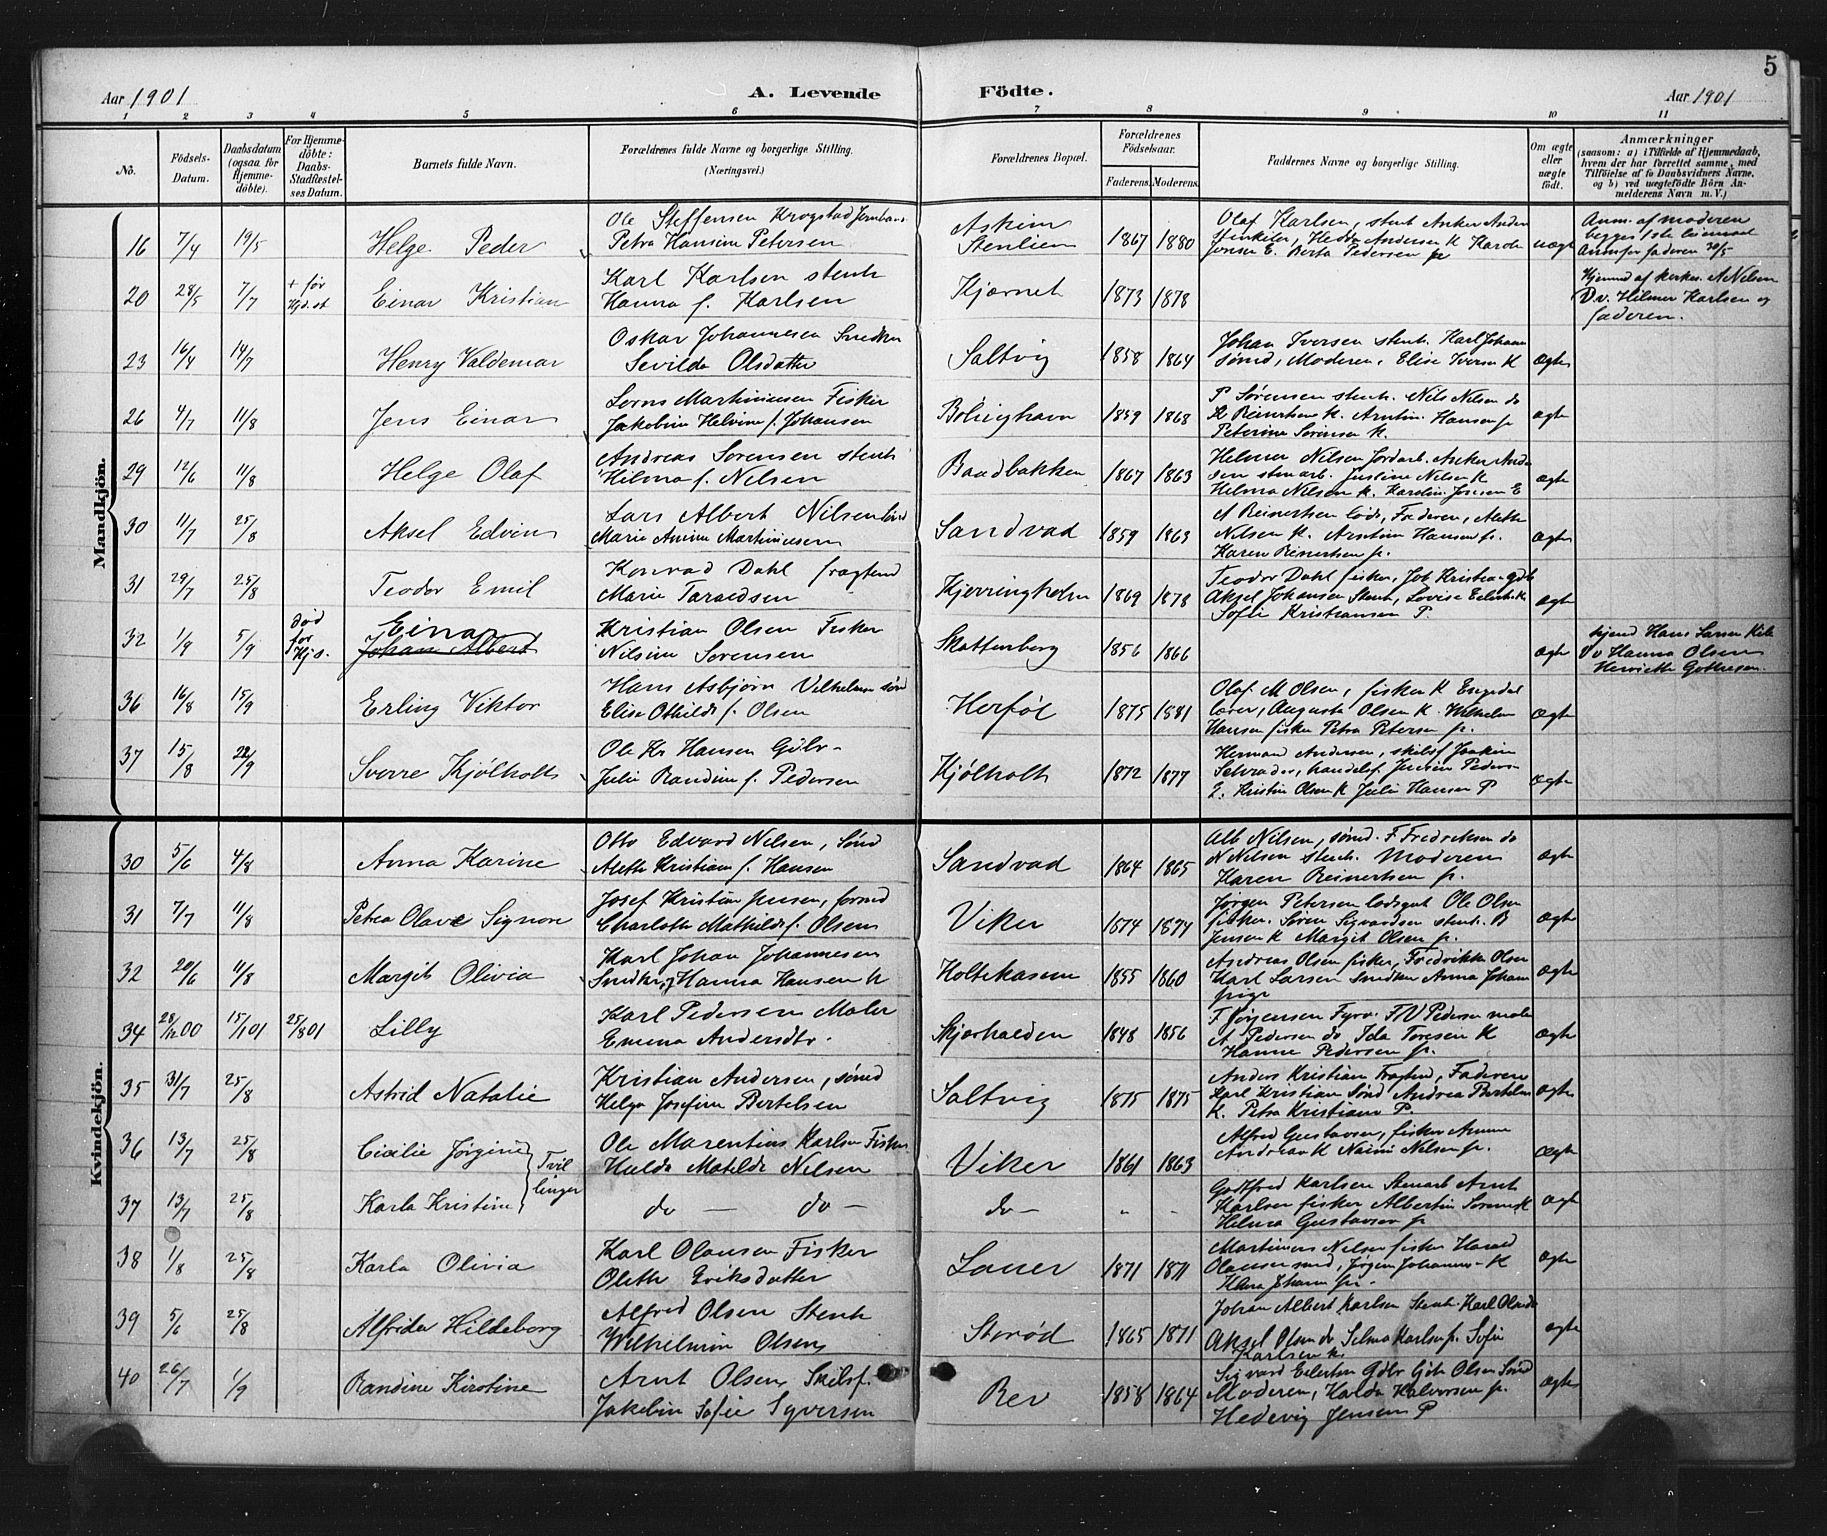 5
Aar 1901 A. Levende Födte. Aar 1901
1 2 3 4 5 6 7 8 9 10 11
No. Födsels-Datum. Daabsdatum (ogsaa for Hjemme-döbte). For Hjemme-döbte: Daabs-Stadfæstel-ses Datum. Barnets fulde Navn. Forældrenes fulde Navne og borgerlige Stilling. (Næringsvei.) Forældrenes Bopæl. Forældrenes Födselsaar. Faderens. Moderens. Faddernes Navne og borgerlige Stilling. Om ægte eller uægte födt. Anmærkninger (saasom: a) i Tilfælde af Hjemmedaab, hvem der har forrettet samme, med Tilföielse af to Daabsvidners Navne, og b) ved uægtefödte Börn An-melderens Navn m. V.)
Mandkjön.
16 7/4 19/5 Helge Peder Ole Steffensen Krogstad
Petra Hansine Petersen Askim
Stenlien 1867 1880 Olaf Karlsen, stenh Anker Ander
E. Berta Pedersen p uægt Anm. af moderen
begges 1ste leiermaal
Anmfor faderen 20/5
20 28/5 7/7 + før
Hjd. st Einar Kristian Karl Karlsen stenh
Hanna f. Karlsen Kjærnet 1873 1878 Hjemmd af kerkes. A Nilsen
D v. Hilmer Karlsen og
faderen.
23 16/4 14/7 Henry Valdemar Oskar Johannesen Snedker
Sevilda Olsdatter Saltvig 1858 1864 Johan Iversen stenh. Karl Johann
sømd, Moderen, Elise Iversen K ægte
26 4/7 11/8 Jens Einar Martiniusen Fisker
Jakobine Helvine f. Johansen Bölinghavn 1859 1868 P Sørensen stenh. Nils Nilsen do
Reinertsen K. Arntine Hansen p
Peterine Sørensen K. ægte
29 12/6 11/8 Helge Olaf Andreas Sørensen stenh
Hilma f. Nelsen Baadbakken 1867 1863 Helmer Nelsen Jordarb. Anker Ande
sen stenarb. Justine Nelsen K
Helma Nelsen K. Karoline Josesen E ægte
30 11/7 25/8 Aksel Edvin Lars Albert Nilsen sömd
Marie Amine Martiniusen Sandvad 1859 1863 A Reinertsen lods, Faderen, Alette
Nilsen K. Arntine Hansen p.
Karen Reinertsen p. ægte
31 29/7 25/8 Teodor Emil Konrad Dahl fragtemd
Marie Taraldsen Kjerringholm 1869 1878 Teodor Dahl fisker, Job Kristia-gdb
Aksel Johansen Stenh, Lovise Eilerts K
Sofie Kristiansen P. ægte
32 1/9 5/9 død
før
Hj.s. Einar
Johan Albert Kristian Olsen Fisker
Nilsine Sørensen Skattenborg 1856 1866 ægte hjemd Hans Larsen
D v Hanna Olsen
Henriette
36 16/8 15/9 Erling Viktor Hans Asbjørn Vilhelmsen sömd
Elise Othilde f. Olsen Herføl 1875 1881 Olaf M Olsen, fisker K Engedal
lærer, Augusta Olsen K. Wilhelm
Hansen fisker Petra Petersen p. ægte
37 15/8 22/9 Sverre Kjölholt Ole Kr Hansen Gdbr-
Julie Randine f. Pedersen Kjölholt 1872 1877 Herman Andersen, skibsf Joakim
Schrader, handelsf. Jensine Peders
E. Kristine Olsen K Julie Hansen P ægte
Kvindekjön.
30 5/6 4/8 Anna Karine Otto Edvard Nilsen, Sömd
Alette Kristiane f. Hansen Sandvad 1864 1865 Alb Nilsen, sömd. F. Fredriksen do
N Nilsen stenh. Moderen
Karen Reinertsen p. ægte
31 7/7 11/8 Petra Olave Signore Josef Kristian Jensen, sømd
Charlotte Mathilde f. Olsen Viker 1874 1874 Jørgen Petersen Ole Olsen
fisker. Søren Sigvardsen stenh. B
Jensen K Margit Olsen p. ægte
32 20/6 11/8 Margit Olivia Karl Johan Johannesen
Snedker, Hanna Hansen Holtekasene 1855 1860 Andreas Olsen fisker, Fredrikke Olsen
Karl Larsen Snedker Anna Johan
pige ægte
34 28/12 00 15/1 01 25/8 01 Lilly Karl Pedersen Maler
Emma Andersdtr. Skjærhalden 1848 1856 F Jørgensen Fyrv. F V Pedersen maler
A Pedersen do Ida Toresen K
Hanne Pedersen p. ægte
35 31/7 25/8 Astrid Natalie Kristian Andersen, sömd
Helga Josefine Bertelsen Saltvig 1875 1875 Anders Kristian Fragtmd, Faderen
Karl Kristian Sömd Andrea Bertelsen
K. Petra Kristians P. ægte
36 13/7 25/8 Cicilie Jørgine Tvil
linger Ole Marentius Karlsen Fisker
Hulda Matilde Nilsen Viker 1861 1863 Alfred Gustavsen, fisker Anne
Andreas K Naimi Nilsen p. Ægte
37 13/7 25/8 Karla Kristine do — do — do — " " Godtfred Karlsen Stenarb Arnt
Karlsen fisker Albertine Sørensen K
Helma Gustavsen p ægte
38 1/8 25/8 Karla Olivia Karl Olausen Fisker
Oleth Eriksdatter Lauer 1871 1871 Martinius Nilsen fisker Harald
Olausen sømd, Jørgine Johannes- K
Klara Johanns p. ægte
39 5/6 25/8 Alfrida Hildeborg Alfred Olsen Stenh
Wilhelmine Olsen Storød 1865 1871 Johan Albert Karlsen Stenh. Karl
Aksel Olsen do Selma Karlsen p. Sofie
Karlsen K. ægte
40 26/7 1/9 Randine Kirstine Arnt Olsen Skibsf.
Jakobine Sofie Syversen Rev 1858 1864 Sigvard Eilertsen Gdbr Olsen Sømd
Moderen, Hulda Halvorsen p.
Hedevig Jensen P ægte